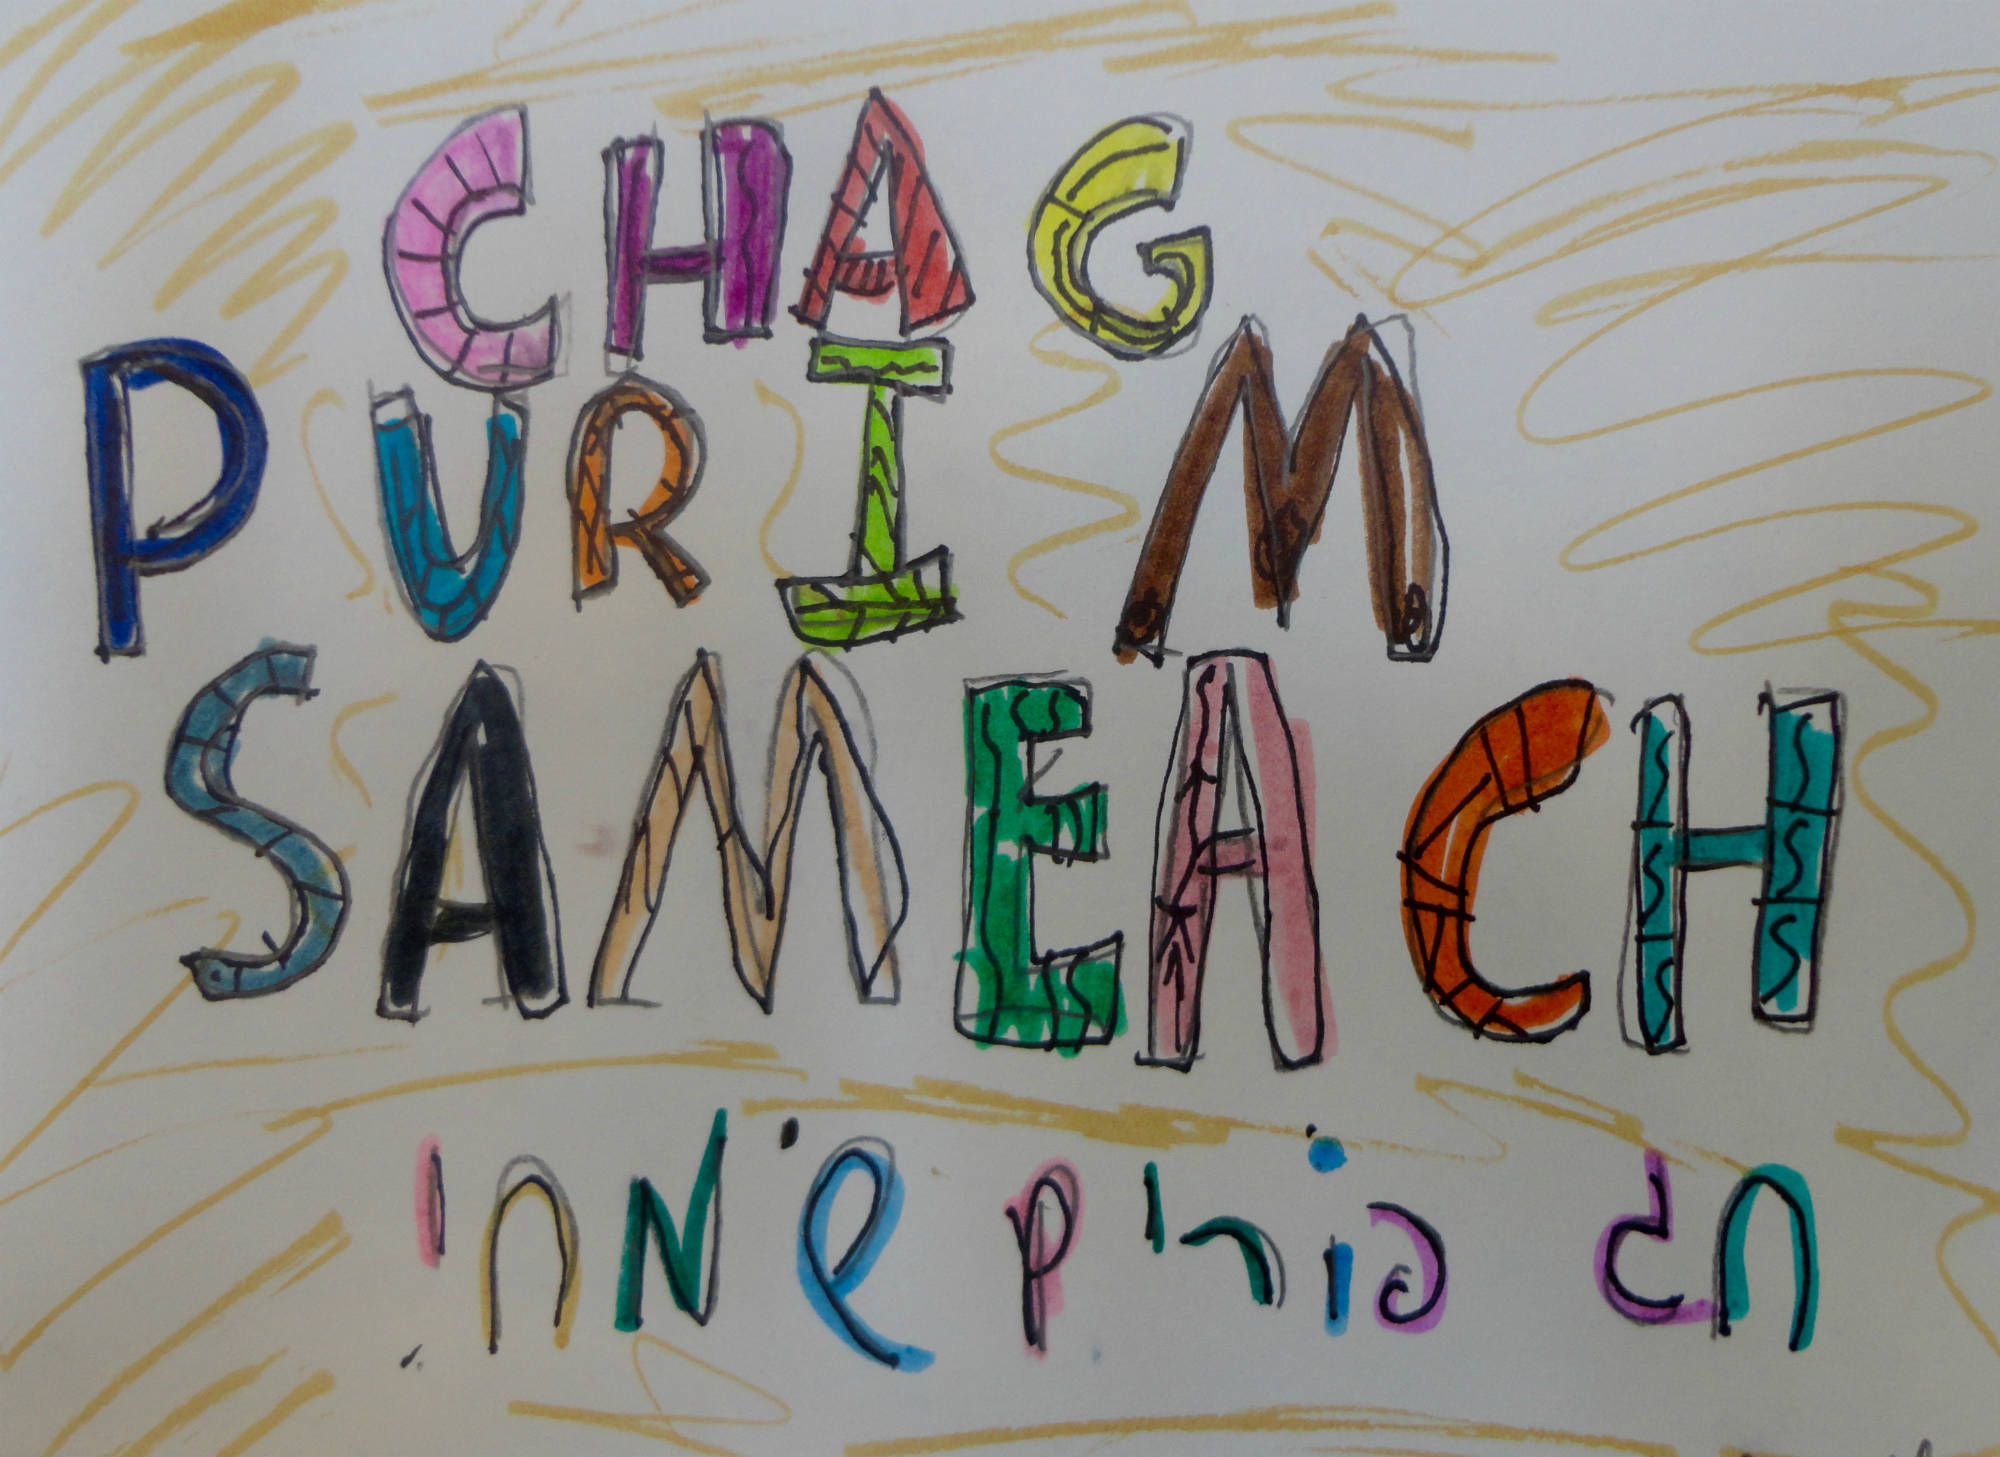 CHAG
PURIM
SAMEACH
חג פורים שמח!